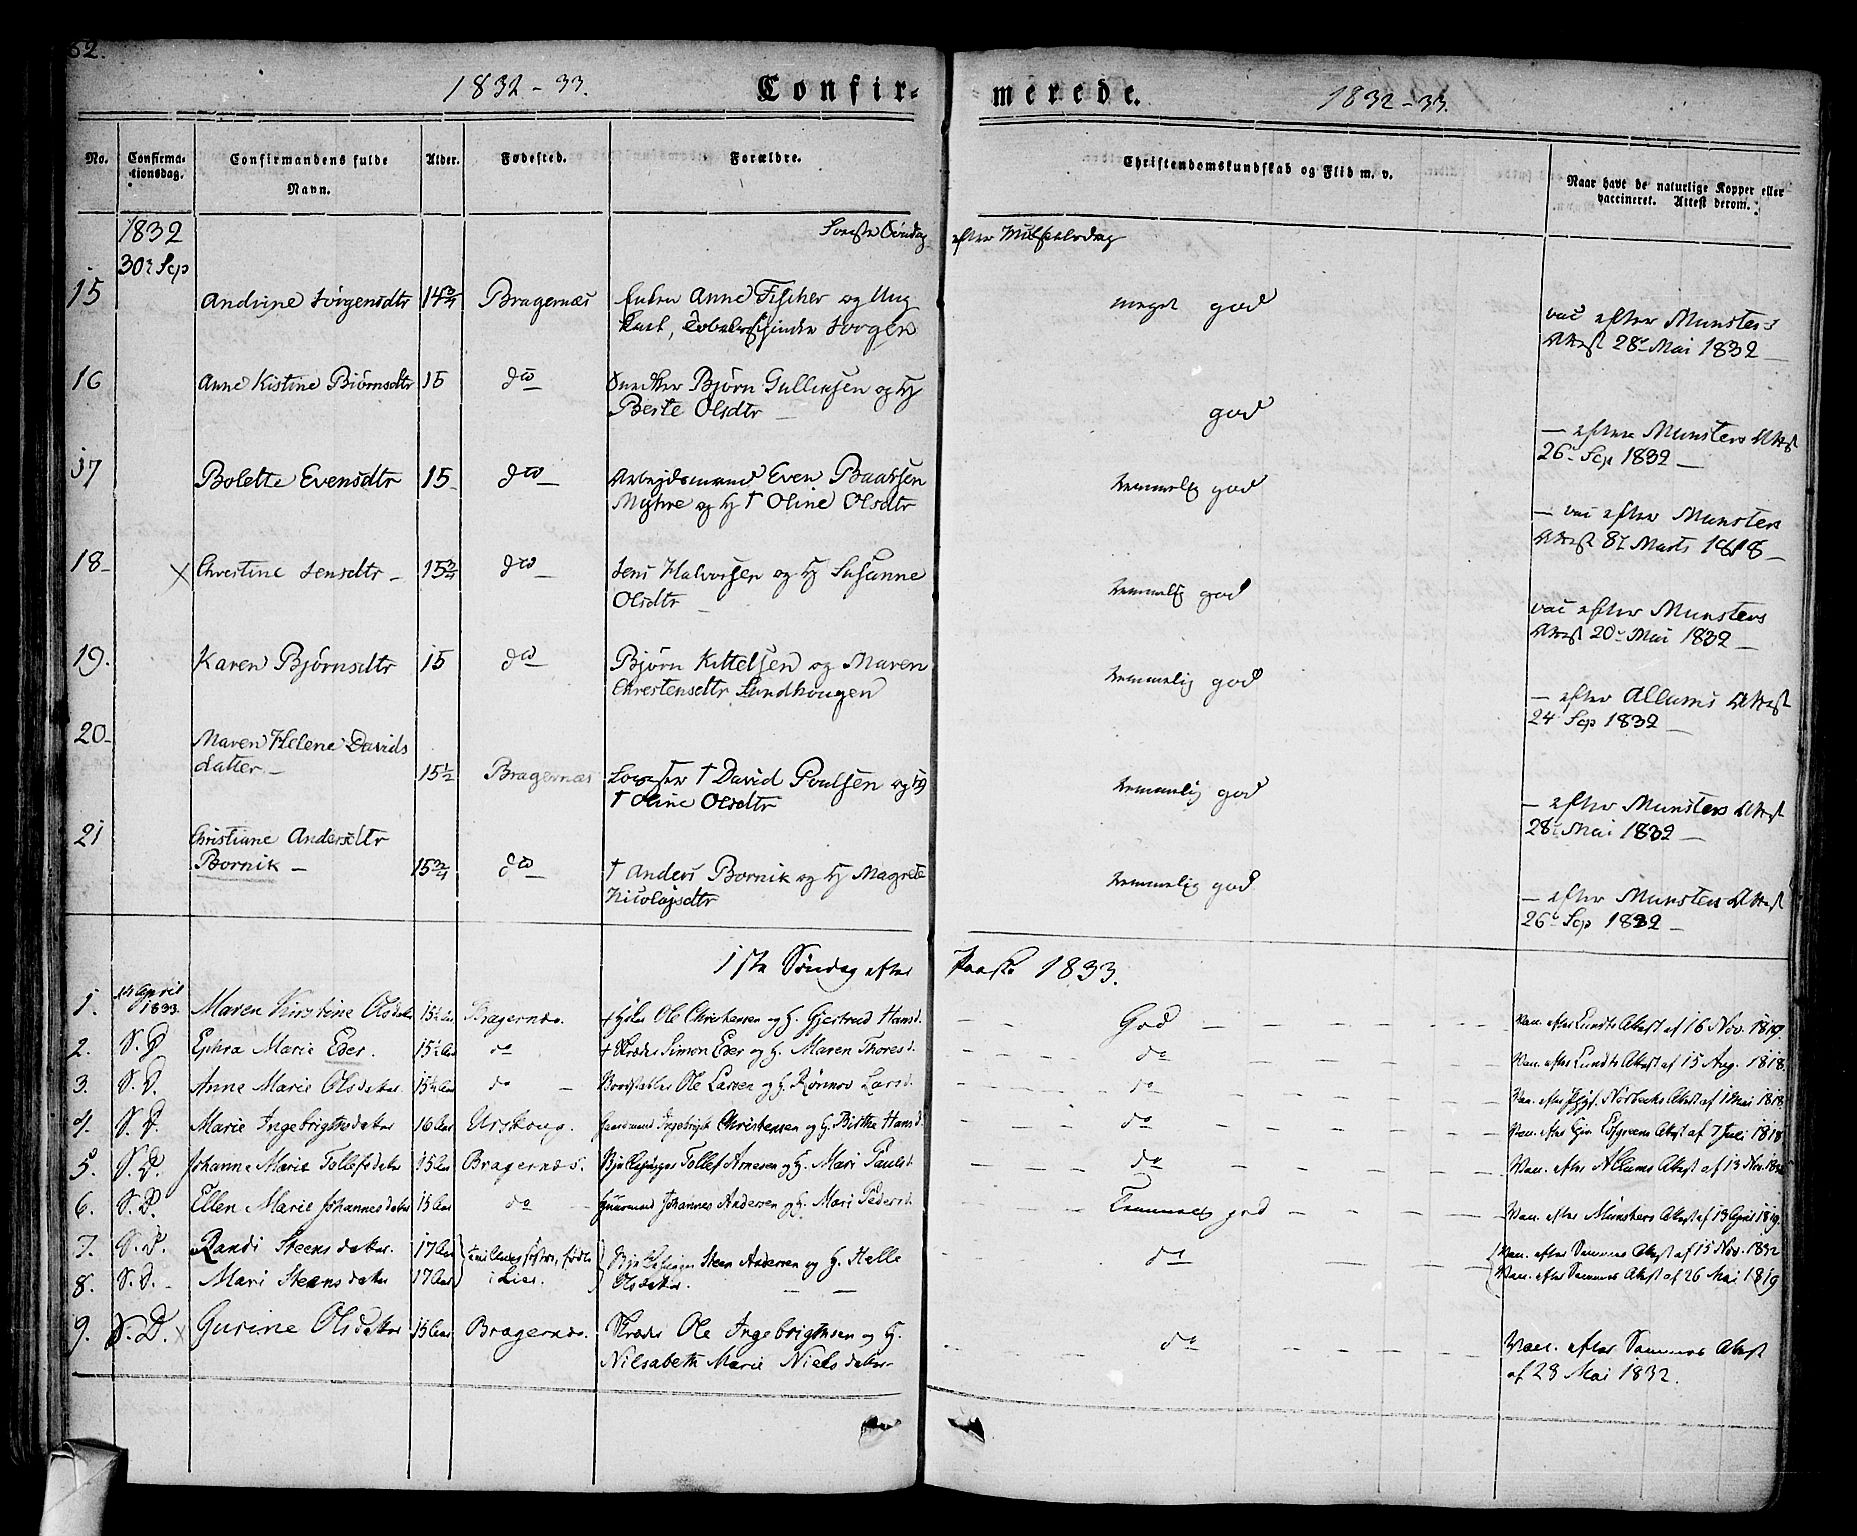 82.
1832-33. Confir- merede. 1832-33.
No. Confirma-tionsdag. Confirmandens fulde Navn. Alder. Fødested. Forældre. Christendomskundskab og Flid m. v. Naar havt de naturlige Kopper eller vaccineret. Attest derom.
1832
30 Sep
Søndag efter
15 Jørgensdtr 14 3/4 Bragernæs Anne Fischer og Ung
Jørgen
meget god
vac efter Munsters
Attest 28 Mai 1832
16 Anne Kistine Bjørnsdtr 15 do Snedker Bjørn Gullicksen og H
Berte Olsdtr
god
efter Munsters Attest
26 Sep 1832
17 Bolette Evensdtr 15 do Arbejdsmand Even Baarsen
Myhre og H † Oline Olsdtr
temmelig god
vac efter Munsters
Attest 8 Marts 1818
18 x Christine Jensdtr 15 3/4 do Jens Halvorsen og H Susanne
Olsdtr
temmelig god
vac efter Munsters
Attest 20 Mai 1832
19. Karen Bjørnsdtr 15 do Bjørn Kittelsen og Maren
Christensdtr Sundhougen
temmelig god
efter Allums Attest
24 Sep 1832
20 Maren Helene Davids
datter 15 1/2 Bragernæs † David Poulsen og H
† Oline Olsdtr
temmelig god
efter Munsters Attest
28 Mai 1832
21 Christiane Andersdtr
Bornik 15 3/4 do † Anders Bornik og H Magrete
Nicolajsdtr
temmelig god
efter Munsters Attest
26 Sep 1832
1ste Søndag efter Paaske 1833.
1. 14 April 1833. Maren Kirstine Olsdatter 15 1/2 Aar Bragernæs. Ole Christensen og H. Gjertrud Hansd. God Vac. efter Lunds Attest af 16 Nov. 1819.
2. S. D. Ephra Marie Eder. 15 1/2 Aar do † Skræder Simon Eder og H. Maren Thoresd. do Vac. efter Lunds Attest af 15 Aug. 1818.
3. S. D. Anne Marie Olsdatter. 15 1/2 Aar do Ole Larsen og H. Rønnov Larsd. do Vac. efter Norbecks Attest af 1 Mai 1818.
4. S. D. Marie Ingebrigtsdatter 16 Aar Urskoug. Ingebrigt Christensen og H. Birthe Hansd. do Vac. efter Attest af 7 Juli 1818
5. S. D. Johanne Marie Tollefsdatter 15 Aar Bragernæs. Tollef Arnesen og H. Mari Paulsd. do Vac. efter Allums Attest af 13 Nov.
6. S. D. Ellen Marie Johannesdatter 15 Aar do Johannes Andersen og H. Mari Pedersd. Temmelig god Vac. efter Münsters Attest af 13 April 1819.
7. S. D. Randi Steensdatter. 17 Aar Tvillingsøstre, fødte Steen Andersen og H. Helle do Vac. efter Sammes Attest af 15 Nov. 1832
8. S. D. Mari Steensdatter 17 Aar i Lier. Olsdatter. Vac. efter Sammes Attest af 26 Mai 1819
9. S. D. x Gurine Olsdatter 15 Aar Bragernæs. Skræder Ole Ingebrigtsen og H.
Nilsabeth Marie Nielsdatter
do
Vacc. efter Sammes Attest
af 28 Mai 1832.